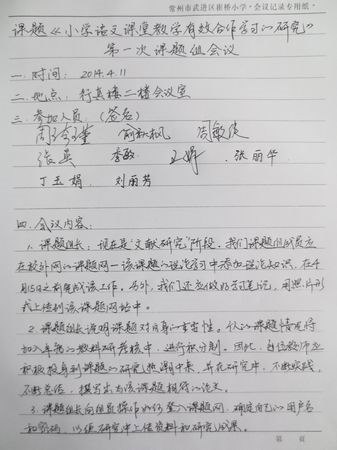 常州市武进区崔桥小学·会议记录专用纸
课题《小学语文课堂教学有效合作学习的研究》
第一次课题组会议
一.时间：2014.4.11
二.地点：行政楼二楼会议室
三.参加人员：（签名）
俞秋枫 周敏俊
张英 李敏 王婷 张丽华
丁玉娟 刘丽芳
四.会议内容：
1.课题组长：现在是"文献研究"阶段，我们课题组成员应
在校外网的课题网—该课题的理论学习中添加理论知识，在4
月15日之前完成该工作。另外，我们还应做好学习笔记，用照片形
式上传到该课题网站中。
2.课题组长说明课题对自身的重要性。认的课题情况将
加入年级的教科研考核中，进行积分制。因此，各位教师应
积极投身到课题的研究热潮中来，并在研究中，不断实践，
不断总结，撰写出与该课题相符的论文。
3.课题组长向组员操作如何登入课题网，确定自己的用户名
和密码，以便研究中上传资料和研究成果。
第 页